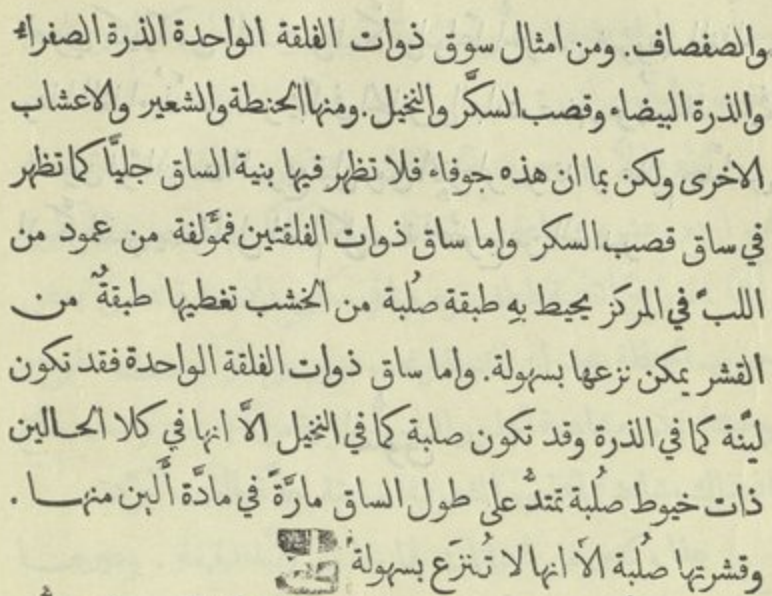 والصفصاف. ومن امثال سوق ذوات الفلقة الواحدة الذرة الصفراء
والذرة البيضاء وقصب السكَّر والنخيل. ومنها الحنطة والشعير والاعشاب
الاخرى ولكن بما ان هذه جوفاء فلا تظهر فيها بنية الساق جليًّا كما تظهر
في ساق قصب السكر واما ساق ذوات الفلقتين فمؤَلفة من عمود من
اللبّ في المركز يحيط بهِ طبقة صُلبة من الخشب تغطيها طبقةٌ من
القشر يمكن نزعها بسهولة. واما ساق ذوات الفلقة الواحدة فقد تكون
ليّنة كما في الذرة وقد تكون صلبة كما في النخيل الاَّ انها في كلا الحالين
ذات خيوط صُلبة تمتدُّ على طول الساق مارَّةً في مادَّة أَلين منها.
وقشرتها صُلبة الاَّ انها لا تُنزَع بسهولة